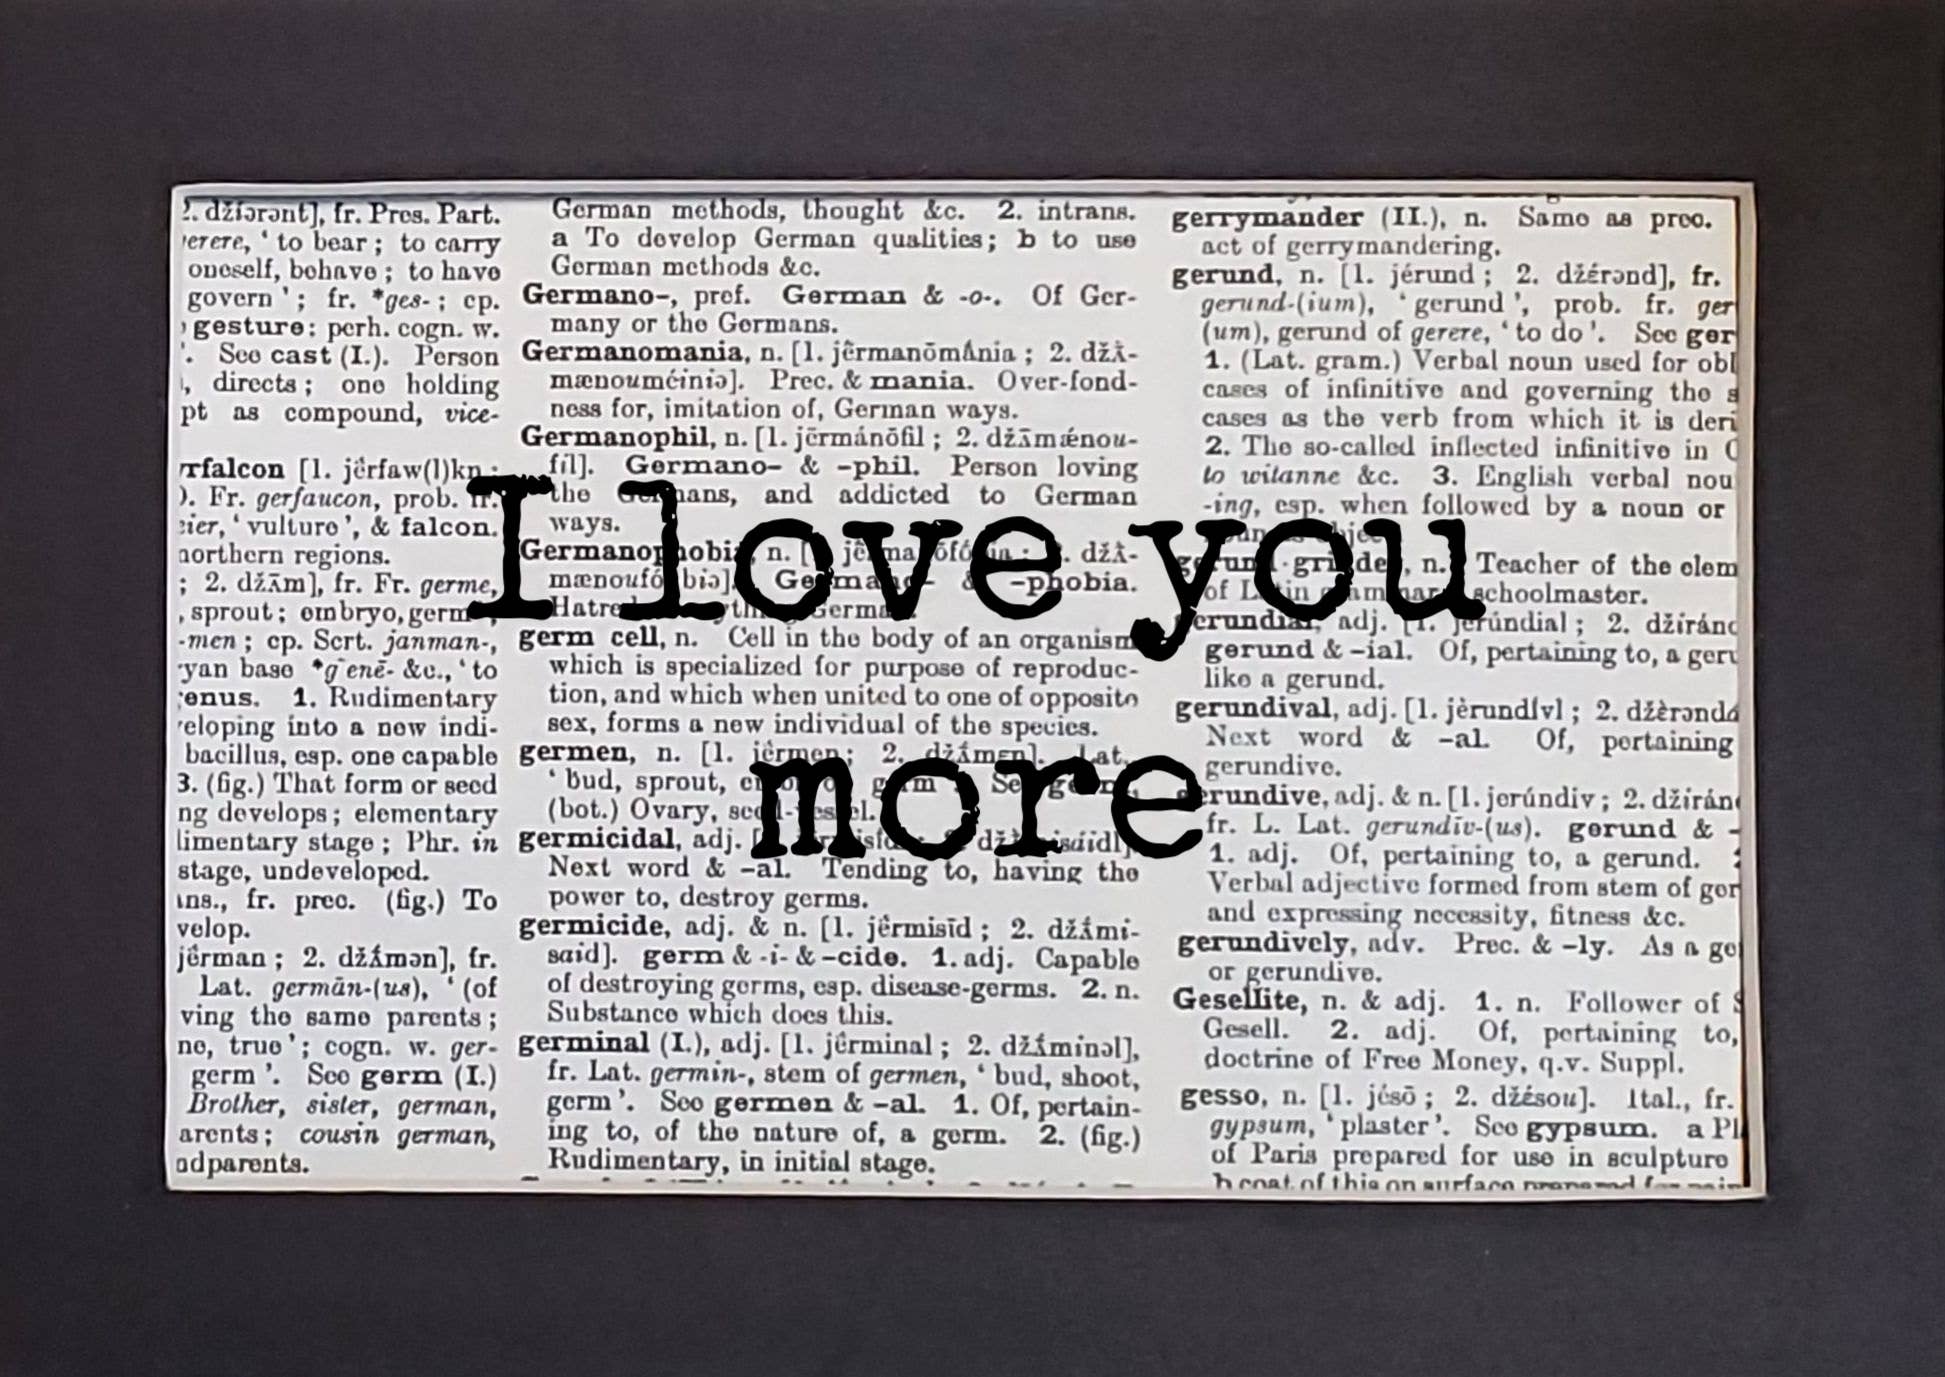 2. džíərənt], fr. Pres. Part.
erere, ' to bear ; to carry
oneself, behave ; to have
govern ' ; fr. *ges- ; cp.
gesture: perh. cogn. w.
'. See cast (I.). Person
, directs ; one holding
pt as compound, vice-
rfalcon [1. jêrfaw(l)kn ;
). Fr. gerfaucon, prob. fr.
eier, ' vulture ', & falcon.
northern regions.
; 2. džĀm], fr. Fr. germe,
, sprout ; embryo, germ
-men ; cp. Scrt. janman-,
yan base *genē- &c., ' to
enus. 1. Rudimentary
eloping into a new indi-
bacillus, esp. one capable
3. (fig.) That form or seed
ng develops ; elementary
limentary stage ; Phr. in
stage, undeveloped.
ins., fr. prec. (fig.) To
velop.
jêrman ; 2. džÁ́mən], fr.
Lat. germān-(us), ' (of
ving the same parents ;
ne, true ' ; cogn. w. ger-
germ '. See germ (I.)
Brother, sister, german,
arents ; cousin german,
adparents.
German methods, thought &c. 2. intrans.
a To develop German qualities ; b to use
German methods &c.
Germano-, pref. German & -o-. Of Ger-
many or the Germans.
Germanomania, n. [1. jêrmanōmánia ; 2. džÀ-
mænouméiniə]. Prec. & mania. Over-fond-
ness for, imitation of, German ways.
Germanophil, n. [1. jêrmánōfil ; 2. džĀmǽnou-
fil]. Germano- & -phil. Person loving
the Germans, and addicted to German
ways.
Germanophobia, n. [1. jêrmanōfóbia ; 2. džÀ-
mænoufóubiə]. Germano- & -phobia.
Hatred
germ cell, n. Cell in the body of an organism
which is specialized for purpose of reproduc-
tion, and which when united to one of opposite
sex, forms a new individual of the species.
germen, n. [1. jêrmen ; 2. džÁ́mɛn]. Lat.
' bud, sprout,
(bot.) Ovary, seed-vessel.
germicidal, adj.
Next word & -al. Tending to, having the
power to, destroy germs.
germicide, adj. & n. [1. jêrmisīd ; 2. džÁ́mi-
said]. germ & -i- & -cide. 1. adj. Capable
of destroying germs, esp. disease-germs. 2. n.
Substance which does this.
germinal (I.), adj. [1. jêrminal ; 2. džÁ́minəl],
fr. Lat. germin-, stem of germen, ' bud, shoot,
germ '. See germen & -al. 1. Of, pertain-
ing to, of the nature of, a germ. 2. (fig.)
Rudimentary, in initial stage.
gerrymander (II.), n. Same as prec.
act of gerrymandering.
gerund, n. [1. jérund ; 2. džérənd], fr.
gerund-(ium), ' gerund ', prob. fr. ger
(um), gerund of gerere, ' to do '. See ger
1. (Lat. gram.) Verbal noun used for obl
cases of infinitive and governing the s
cases as the verb from which it is deri
2. The so-called inflected infinitive in
to witanne &c. 3. English verbal nou
-ing, esp. when followed by a noun or
gerund-grinder, n. Teacher of the elem
of Latin grammar, schoolmaster.
gerundial, adj. [1. jerúndial ; 2. džiránd
gerund & -ial. Of, pertaining to, a geru
like a gerund.
gerundival, adj. [1. jèrundívl ; 2. džèrəndá
Next word & -al. Of, pertaining
gerundive.
gerundive, adj. & n. [1. jerúndiv ; 2. džirán
fr. L. Lat. gerundīv-(us). gerund & -
1. adj. Of, pertaining to, a gerund.
Verbal adjective formed from stem of ger
and expressing necessity, fitness &c.
gerundively, adv. Prec. & -ly. As a ge
or gerundive.
Gesellite, n. & adj. 1. n. Follower of S
Gesell. 2. adj. Of, pertaining to,
doctrine of Free Money, q.v. Suppl.
gesso, n. [1. jésō ; 2. džésou]. Ital., fr.
gypsum, ' plaster '. See gypsum. a Pl
of Paris prepared for use in sculpture
b coat of this on surface prepared for
I love you
more